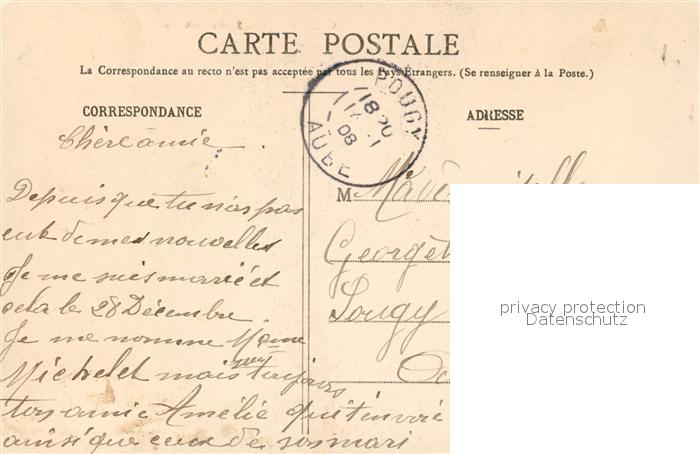 CARTE POSTALE
La Correspondance au recto n'est pas acceptée par tous les Pays Étrangers. (Se renseigner à la Poste.)
CORRESPONDANCE
ADRESSE
POUGY
18
08
AUBE
Chère amie
Depuis que tu n'as pas
eut de mes nouvelles
Je me suis marié et
cela le 28 Décembre
Je me nomme Mame
Michelet mais toujours
ton amie Amélie qui t'envoie
ainsi que ceux de son mari
M
Georget
Pougy
privacy protection
Datenschutz